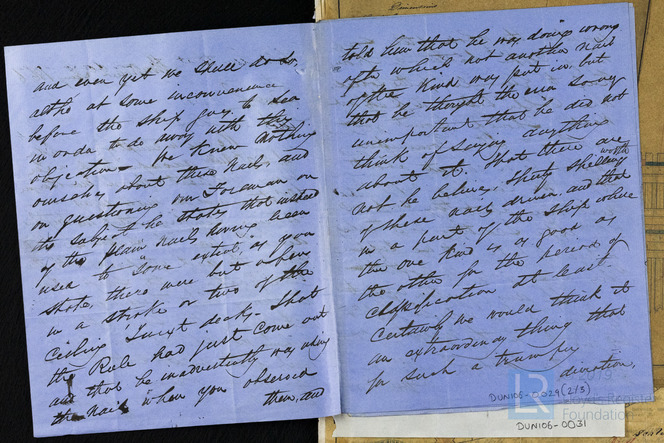 and even yet we shall do so,
altho at some inconvenience
before the ship goes to sea
in order to do away with the
objection - We knew nothing
ourselves about these Nails, and
on questioning our Foreman on
the subject he states that instead
of the plain nails having been
used to "some extent, as you
state, there were but a few
in a stroke or two of the
Ceiling 'Twixt decks - That
the Rule had just come out
and that he inadvertently was using
the nails when you observed
them, and
told him that he was doing wrong
after which not another nail
of the kind was put in, but
that he thought the error so very
unimportant that he did not
think of saying anything
about it. That there are
not he believes, thirty shillings
worth
of these nails driven and that
in a part of the ship where
the one kind is as good as
the other for the period of
classification at least -
Certainly we would think it
an extraordinary thing that
for such a trumpery
deviation,
DUN106-0029 (2/3)
LR
Lloyd's Register
Foundation
DUN106-0031